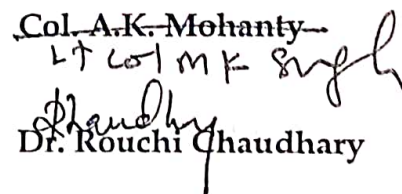 Col. A.K. Mohanty
Lt Col M K Singh
Chaudhry
Dr. Rouchi Chaudhary